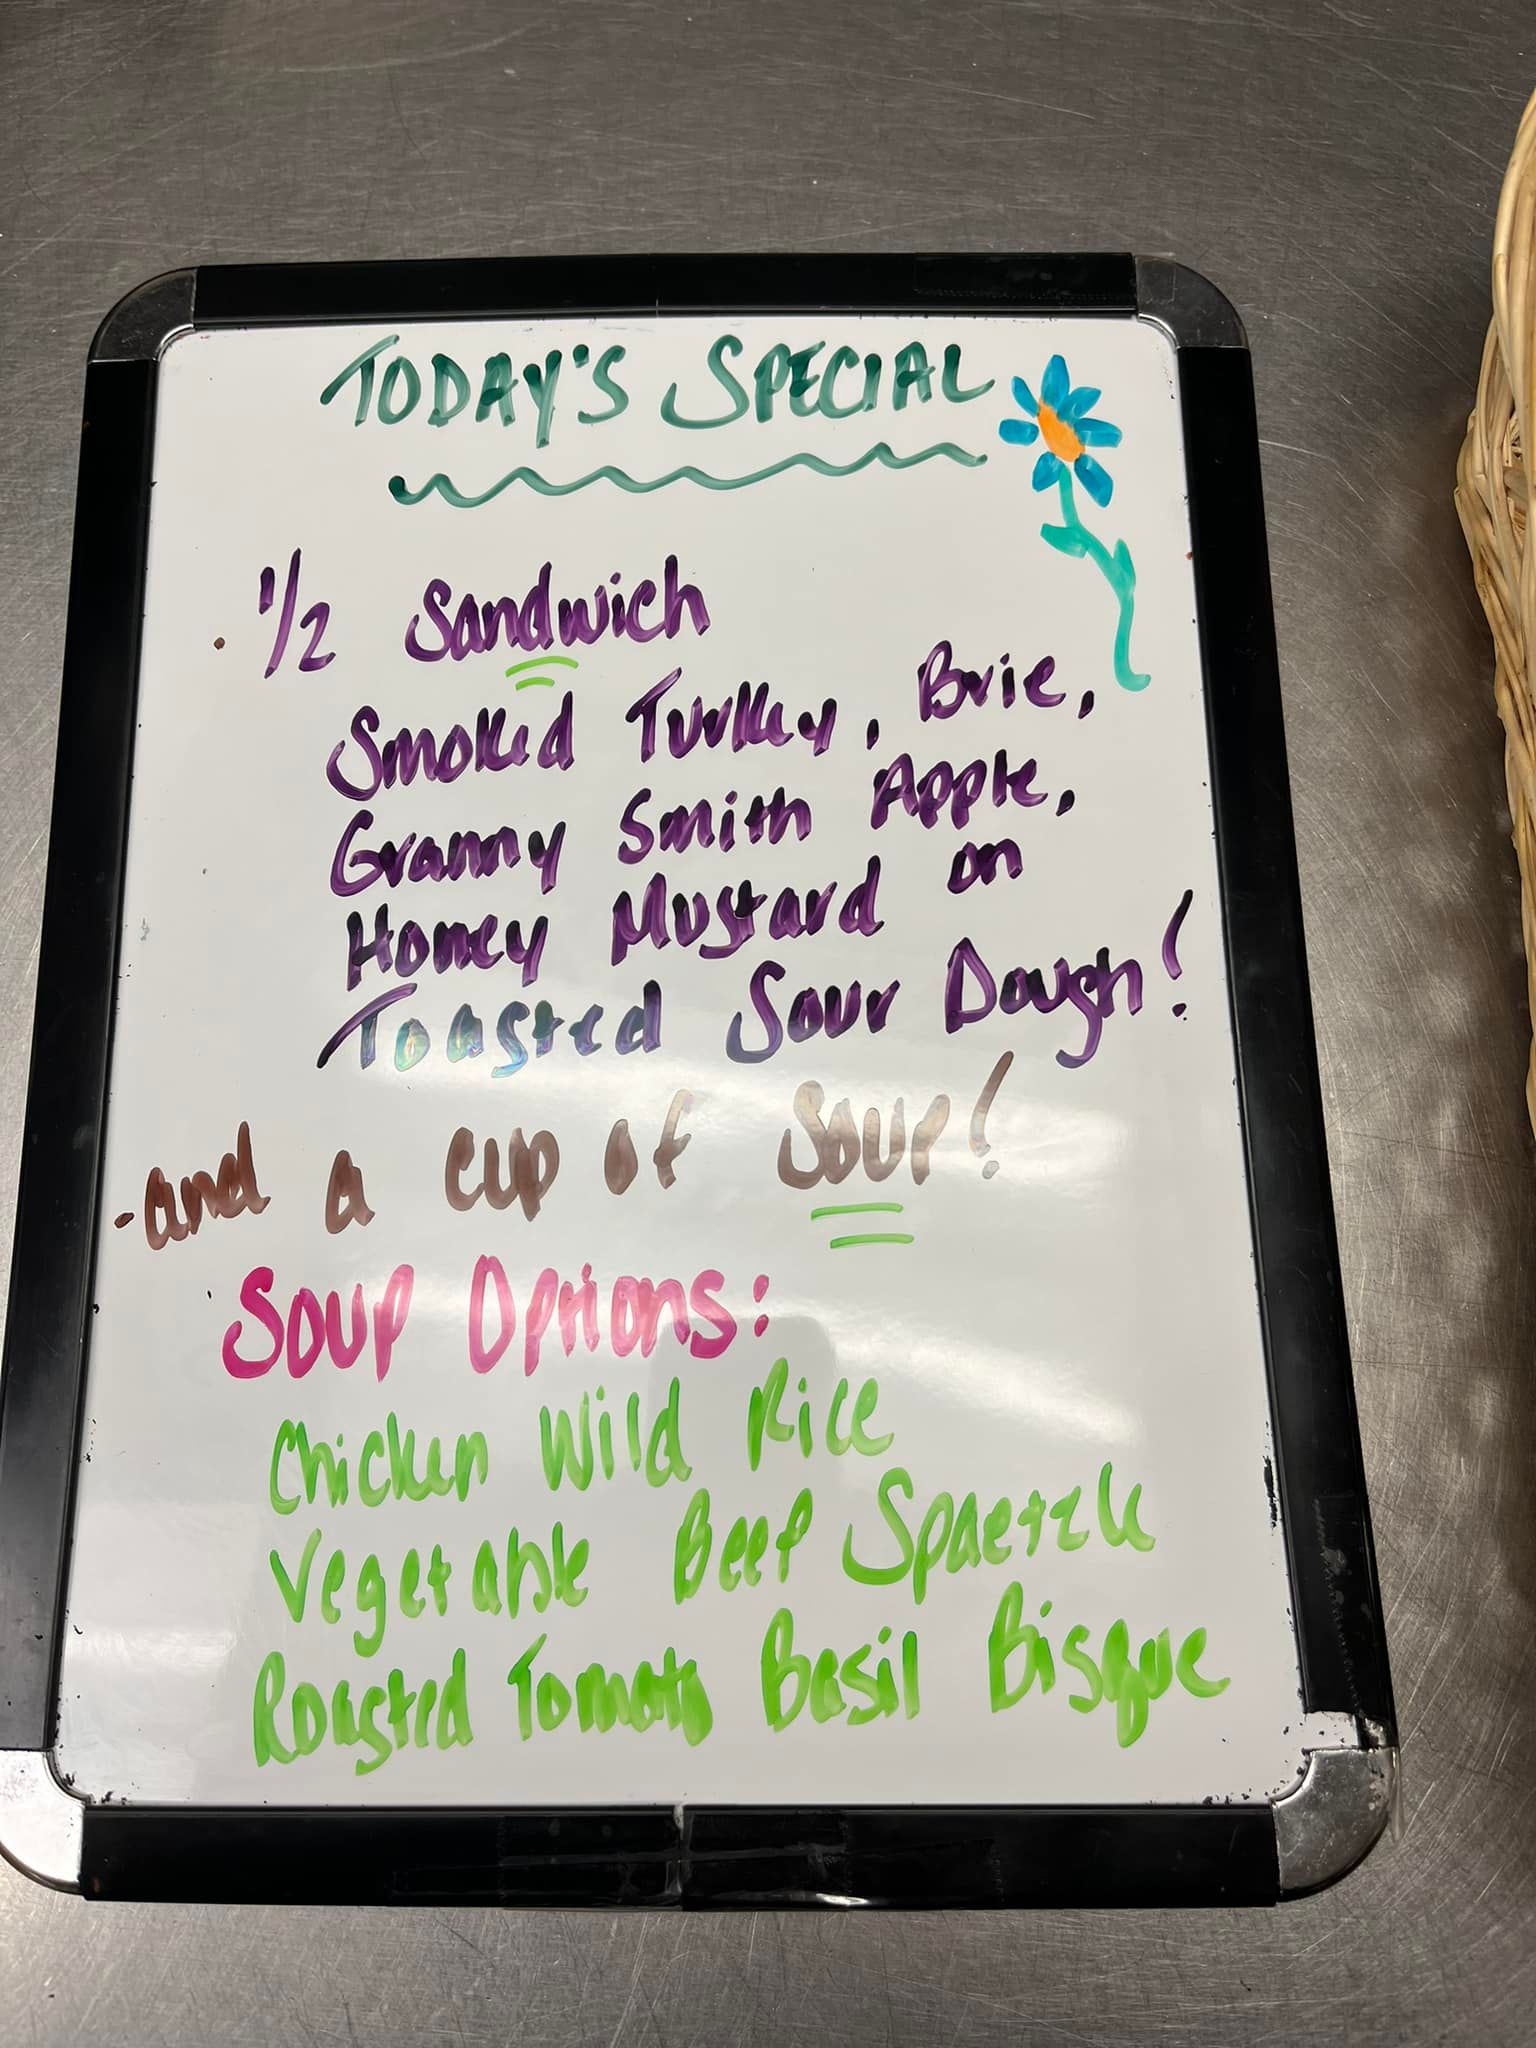 TODAY'S SPECIAL
1/2 Sandwich
Smoked Turkey, Brie,
Granny Smith Apple,
Honey Mustard on
Toasted Sour Dough!
-and a cup of Soup!
Soup Options:
Chicken Wild Rice
Vegetable Beef Spaetzle
Roasted Tomato Basil Bisque